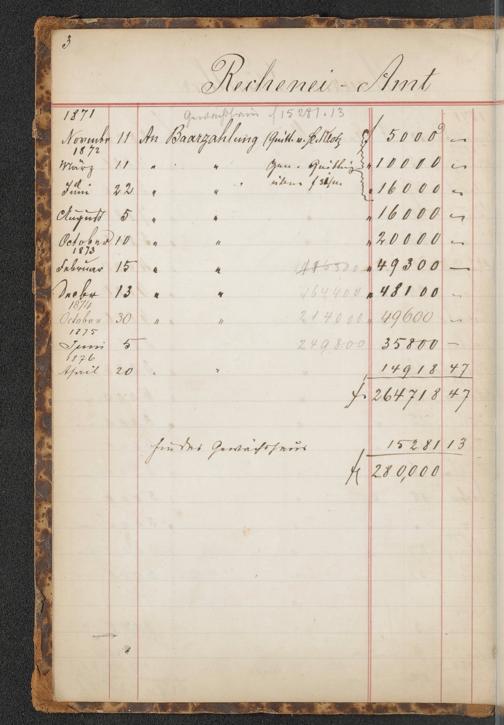 3
Rechenei-Amt
1871 Gewächshaus f 15281.13
Novembr 11 An Baarzahlung f 5000 —
1872
März 11 " " " 10000 —
Juni 22 " " " 16000 —
August 5 " " " 16000 —
October 10 " " " 20000 —
1873
Februar 15 " " " 49300 —
Decbr 13 " " 164400 " 48100 —
1874
October 30 " " 214000 " 49600 —
1875
Juni 5 249800 35800 —
1876
April 20 " " 14918 47
f. 264718 47
für das Gewächshaus 15281 13
f 280,000